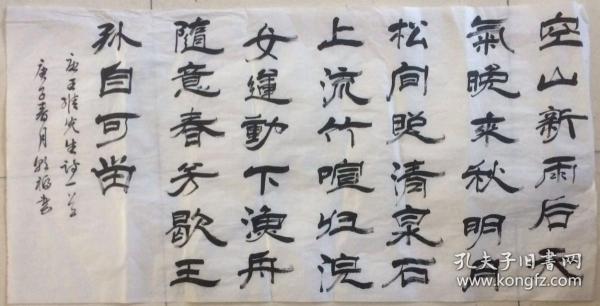 空山新雨后天
氣晚来秋明月
松间清泉石
上流竹喧归浣
女動下渔舟
隨意春芳歇王
孙自可留
唐王维先生诗一首
庚子春月书
孔夫子旧书网
www.kongfz.com